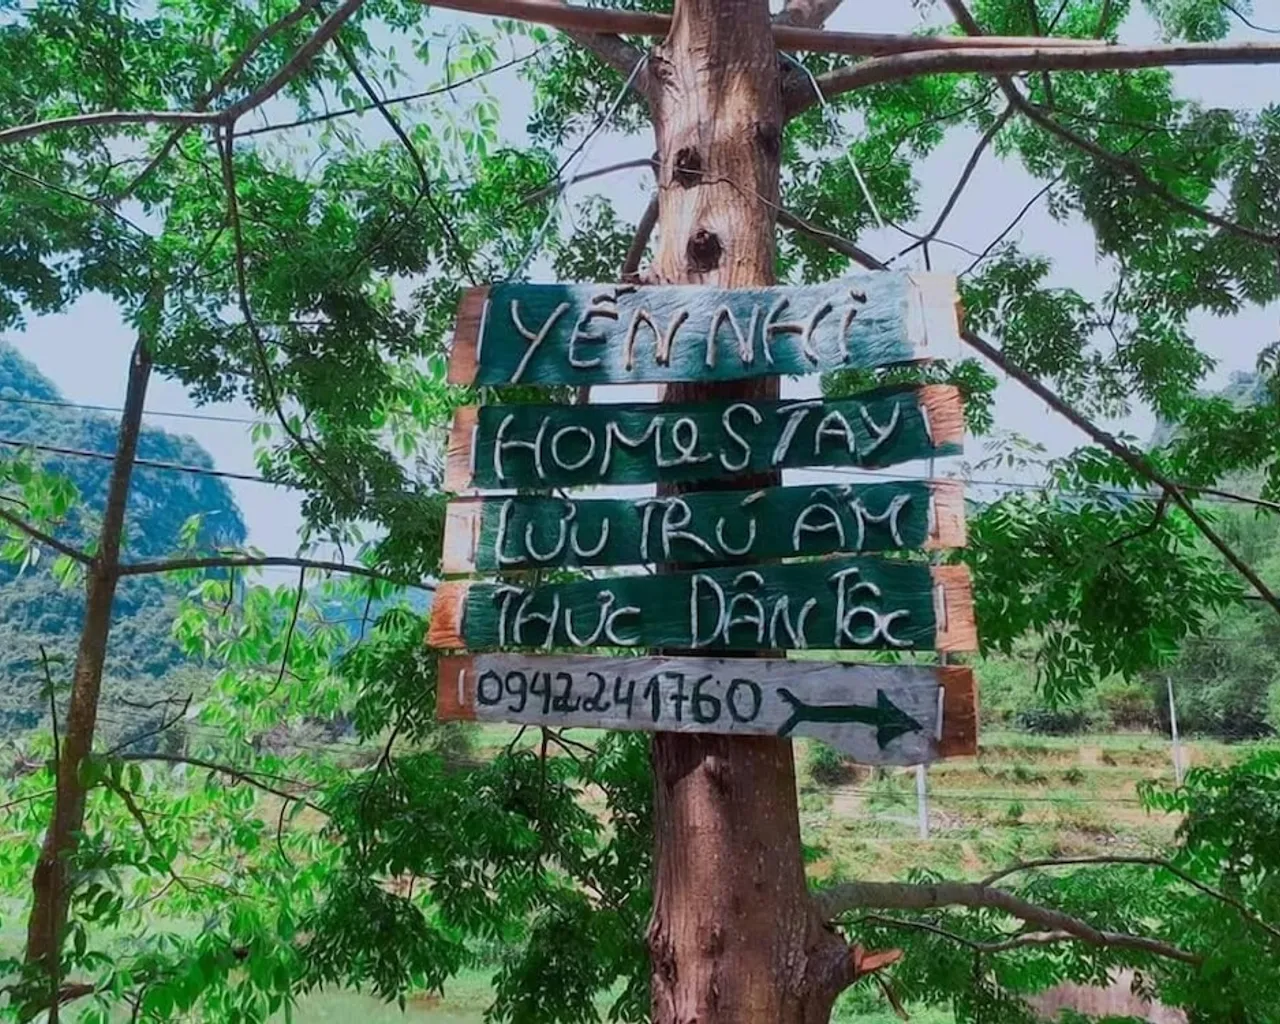 YẾN NHi
HOMeSTAY
LƯU TRÚ ẨM
THỰC DÂN TỘC
0942241760